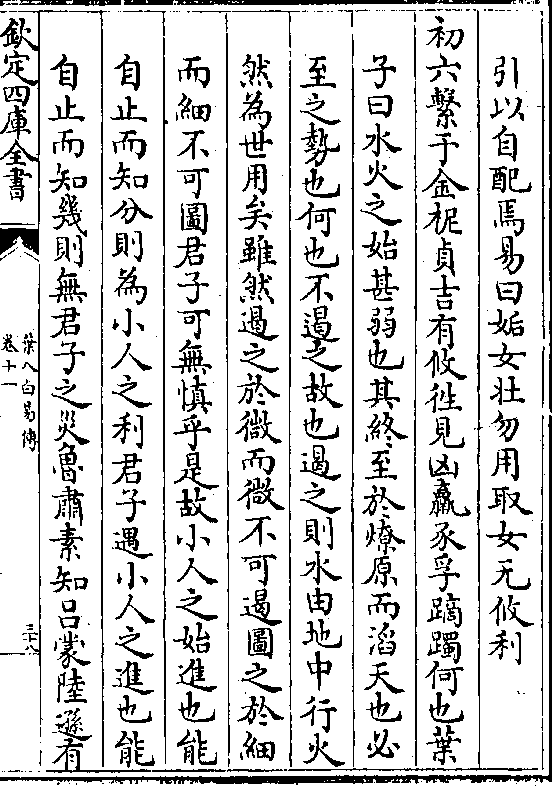 引以自配焉易曰姤女壯勿用取女无攸利
初六繫于金柅貞吉有攸徃見凶羸豕孚蹢躅何也葉
子曰水火之始甚弱也其終至於燎原而滔天也必
至之勢也何也不遏之故也遏之則水由地中行火
然為世用矣雖然遏之於微而微不可遏圖之於細
而細不可圖君子可無慎乎是故小人之始進也能
自止而知分則為小人之利君子遇小人之進也能
自止而知幾則無君子之災魯肅素知吕蒙陸遜有
欽定四庫全書
葉八白易傳
卷十一
三十八